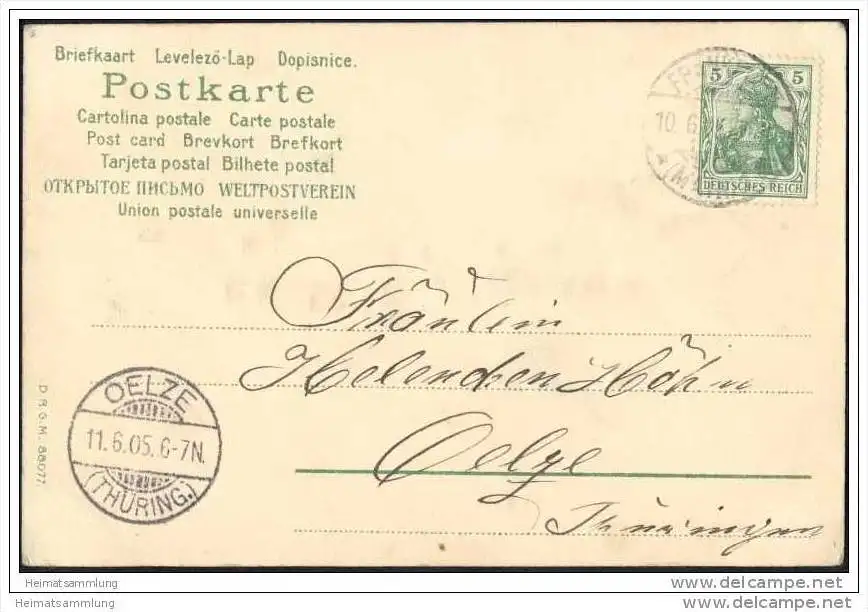 Briefkaart Levelező-Lap Dopisnice.
Postkarte
Cartolina postale Carte postale
Post card Brevkort Brefkort
Tarjeta postal Bilhete postal
ОТКРЫТОЕ ПИСЬМО WELTPOSTVEREIN
Union postale universelle
5 5
DEUTSCHES REICH
10.6
Fräulein
Helenchen Höhn
Oelze
Thüringen
OELZE
11.6.05.6-7N.
(THÜRING.)
D.R.G.M. 88077.
Heimatsammlung
Heimatsammlung
www.delcampe.net